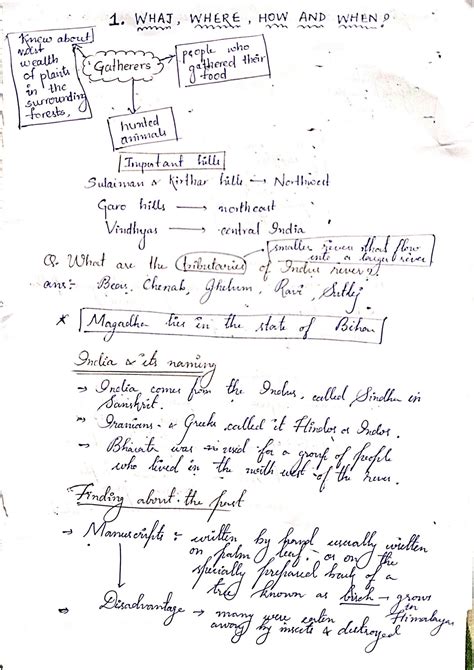 1. WHAT, WHERE, HOW AND WHEN?
Know about
vast
wealth
of plants
in the
surrounding
forests.
Gatherers
people who
gathered their
food
hunted
animals
Important hills
Sulaiman & Kirthar hills → Northwest
Garo hills → northeast
Vindhyas → central India
smaller rivers that flow
into a larger river
Q. What are the tributaries of Indus river?
ans:- Beas, Chenab, Jhelum, Ravi, Sutlej
* Magadha lies in the state of Bihar
India & its naming
→ India comes from the Indus, called Sindhu in
Sanskrit.
→ Iranians & Greeks called it Hindos or Indos.
→ Bharata was used for a group of people
who lived in the north west of the river.
Finding about the past
→ Manuscripts :- written by hand usually written
on palm leaf or on the
specially prepared bark of a
tree known as birch → grows
in
Himalayas
→ Disadvantage → many were eaten
away by insects & destroyed